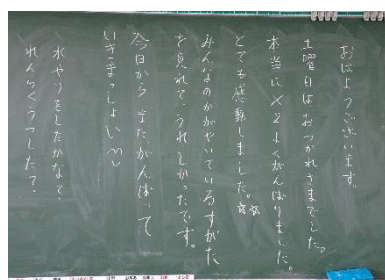 おはようございます。
土曜日はおつかれさまでした。
本当に××よくがんばりました。
とても感動しました。☆☆
みんなのかがやいているすがた
を見れて、うれしかったです。
今日からまたがんばって
いきまっしょい
水やりをしたかな?
れんらくうつした?